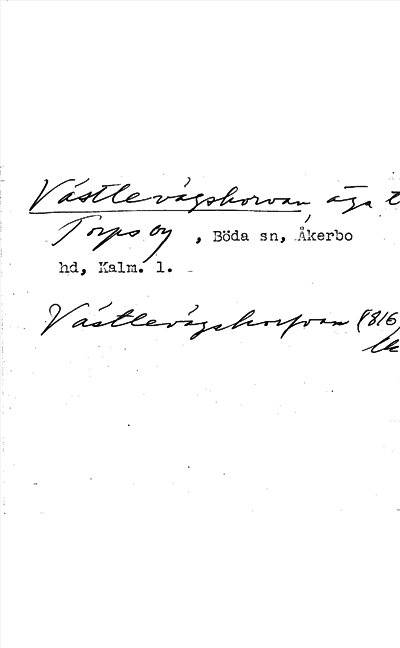 Västlevägskorvan, äga t
Torps by, Böda sn, Åkerbo
hd, Kalm. l.
Västlevägskorfvan (1816,